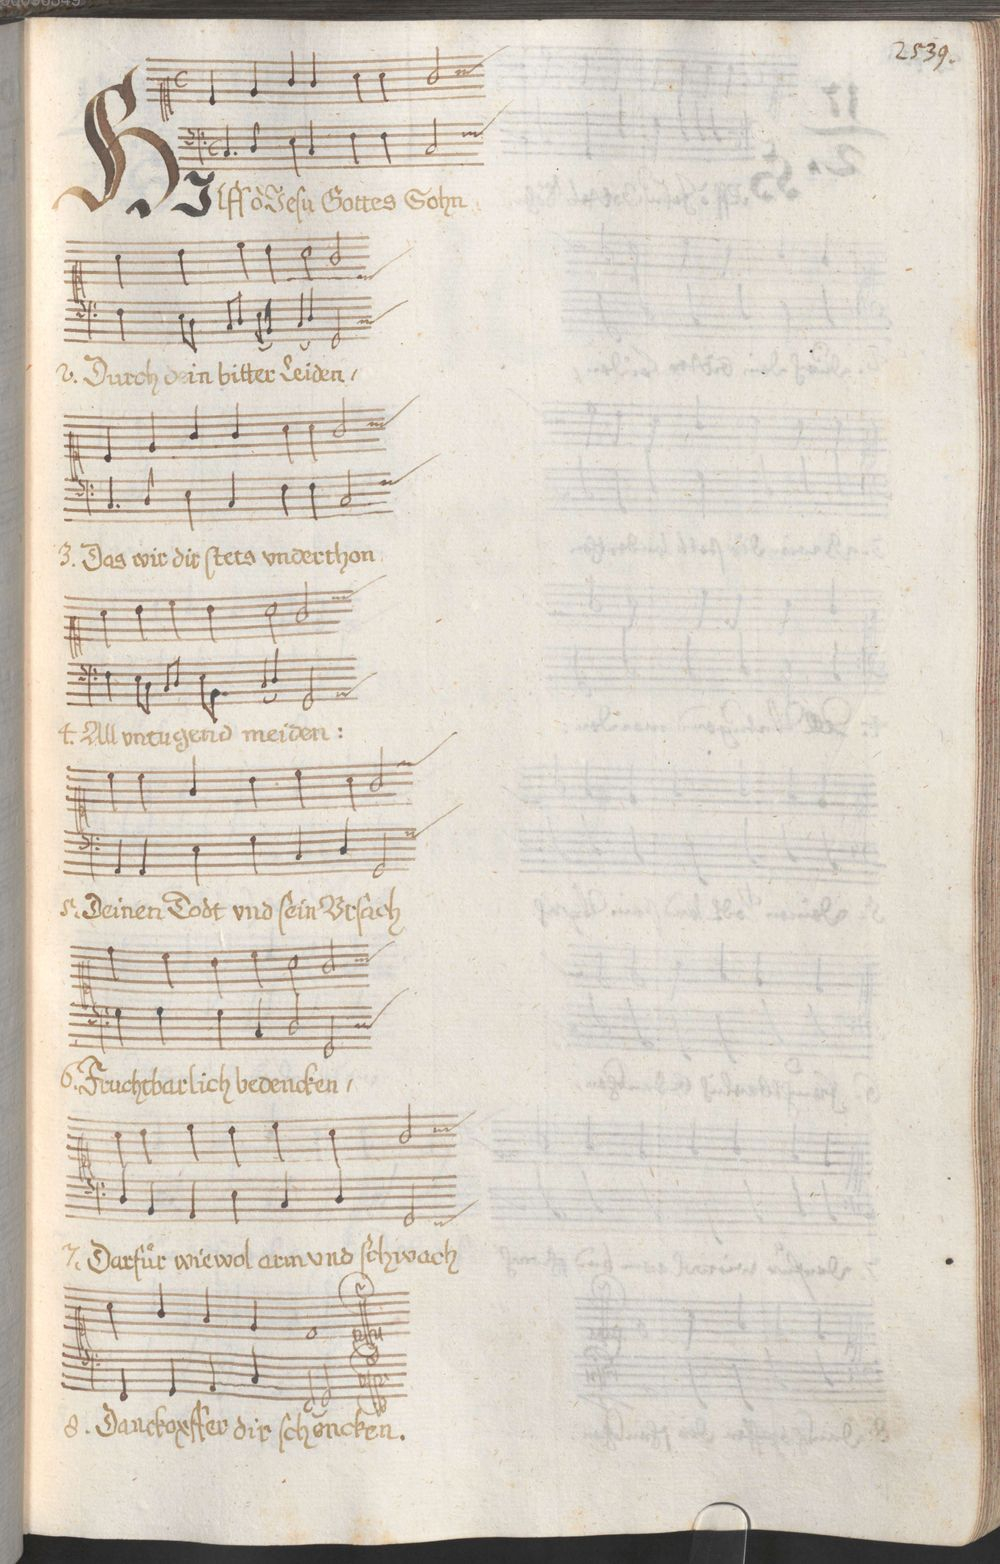 2539.
HIlff ò Jesu Gottes Sohn
2. Durch dein bitter Leiden,
3. Das wir dir stets vnderthon
4. All vntugend meiden:
5. Deinen Todt vnd sein Vrsach
6. Fruchtbarlich bedencken,
7. Darfür wiewol arm vnd schwach
8. Danckopffer dir schencken.